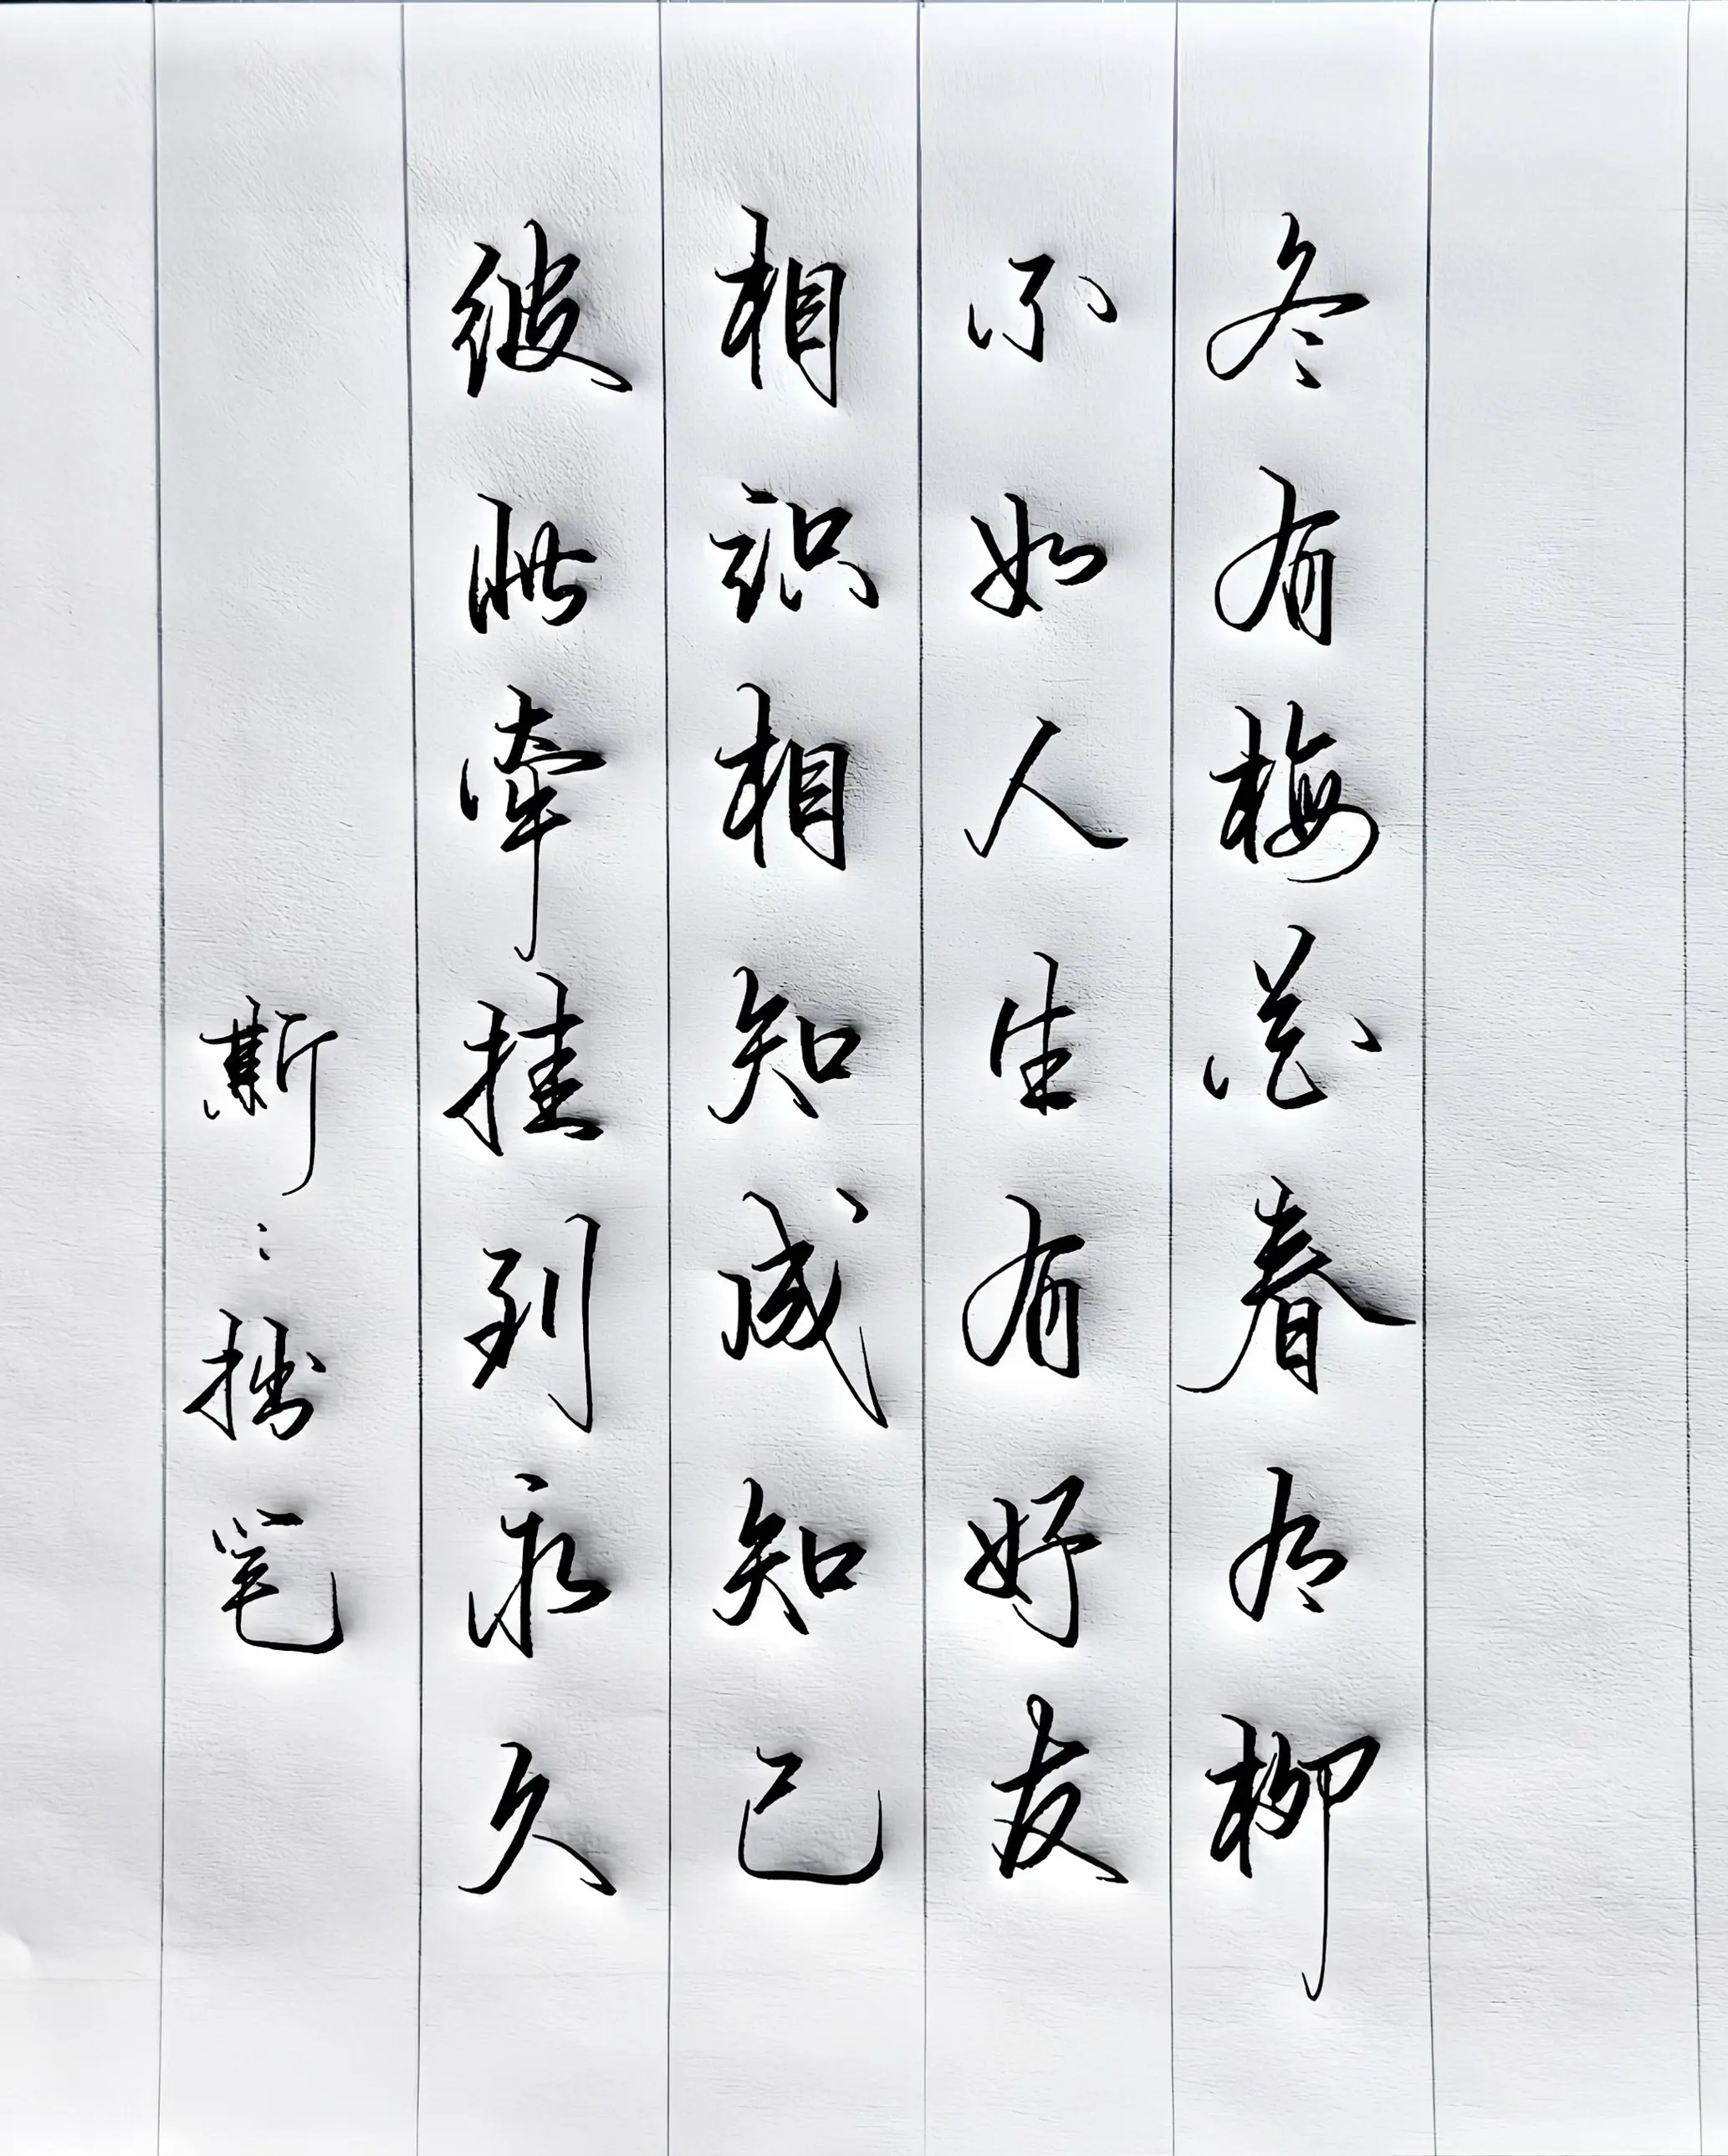 冬有梅花春有柳
不如人生有好友
相识相知成知己
彼此牵挂到永久
斯：拙笔